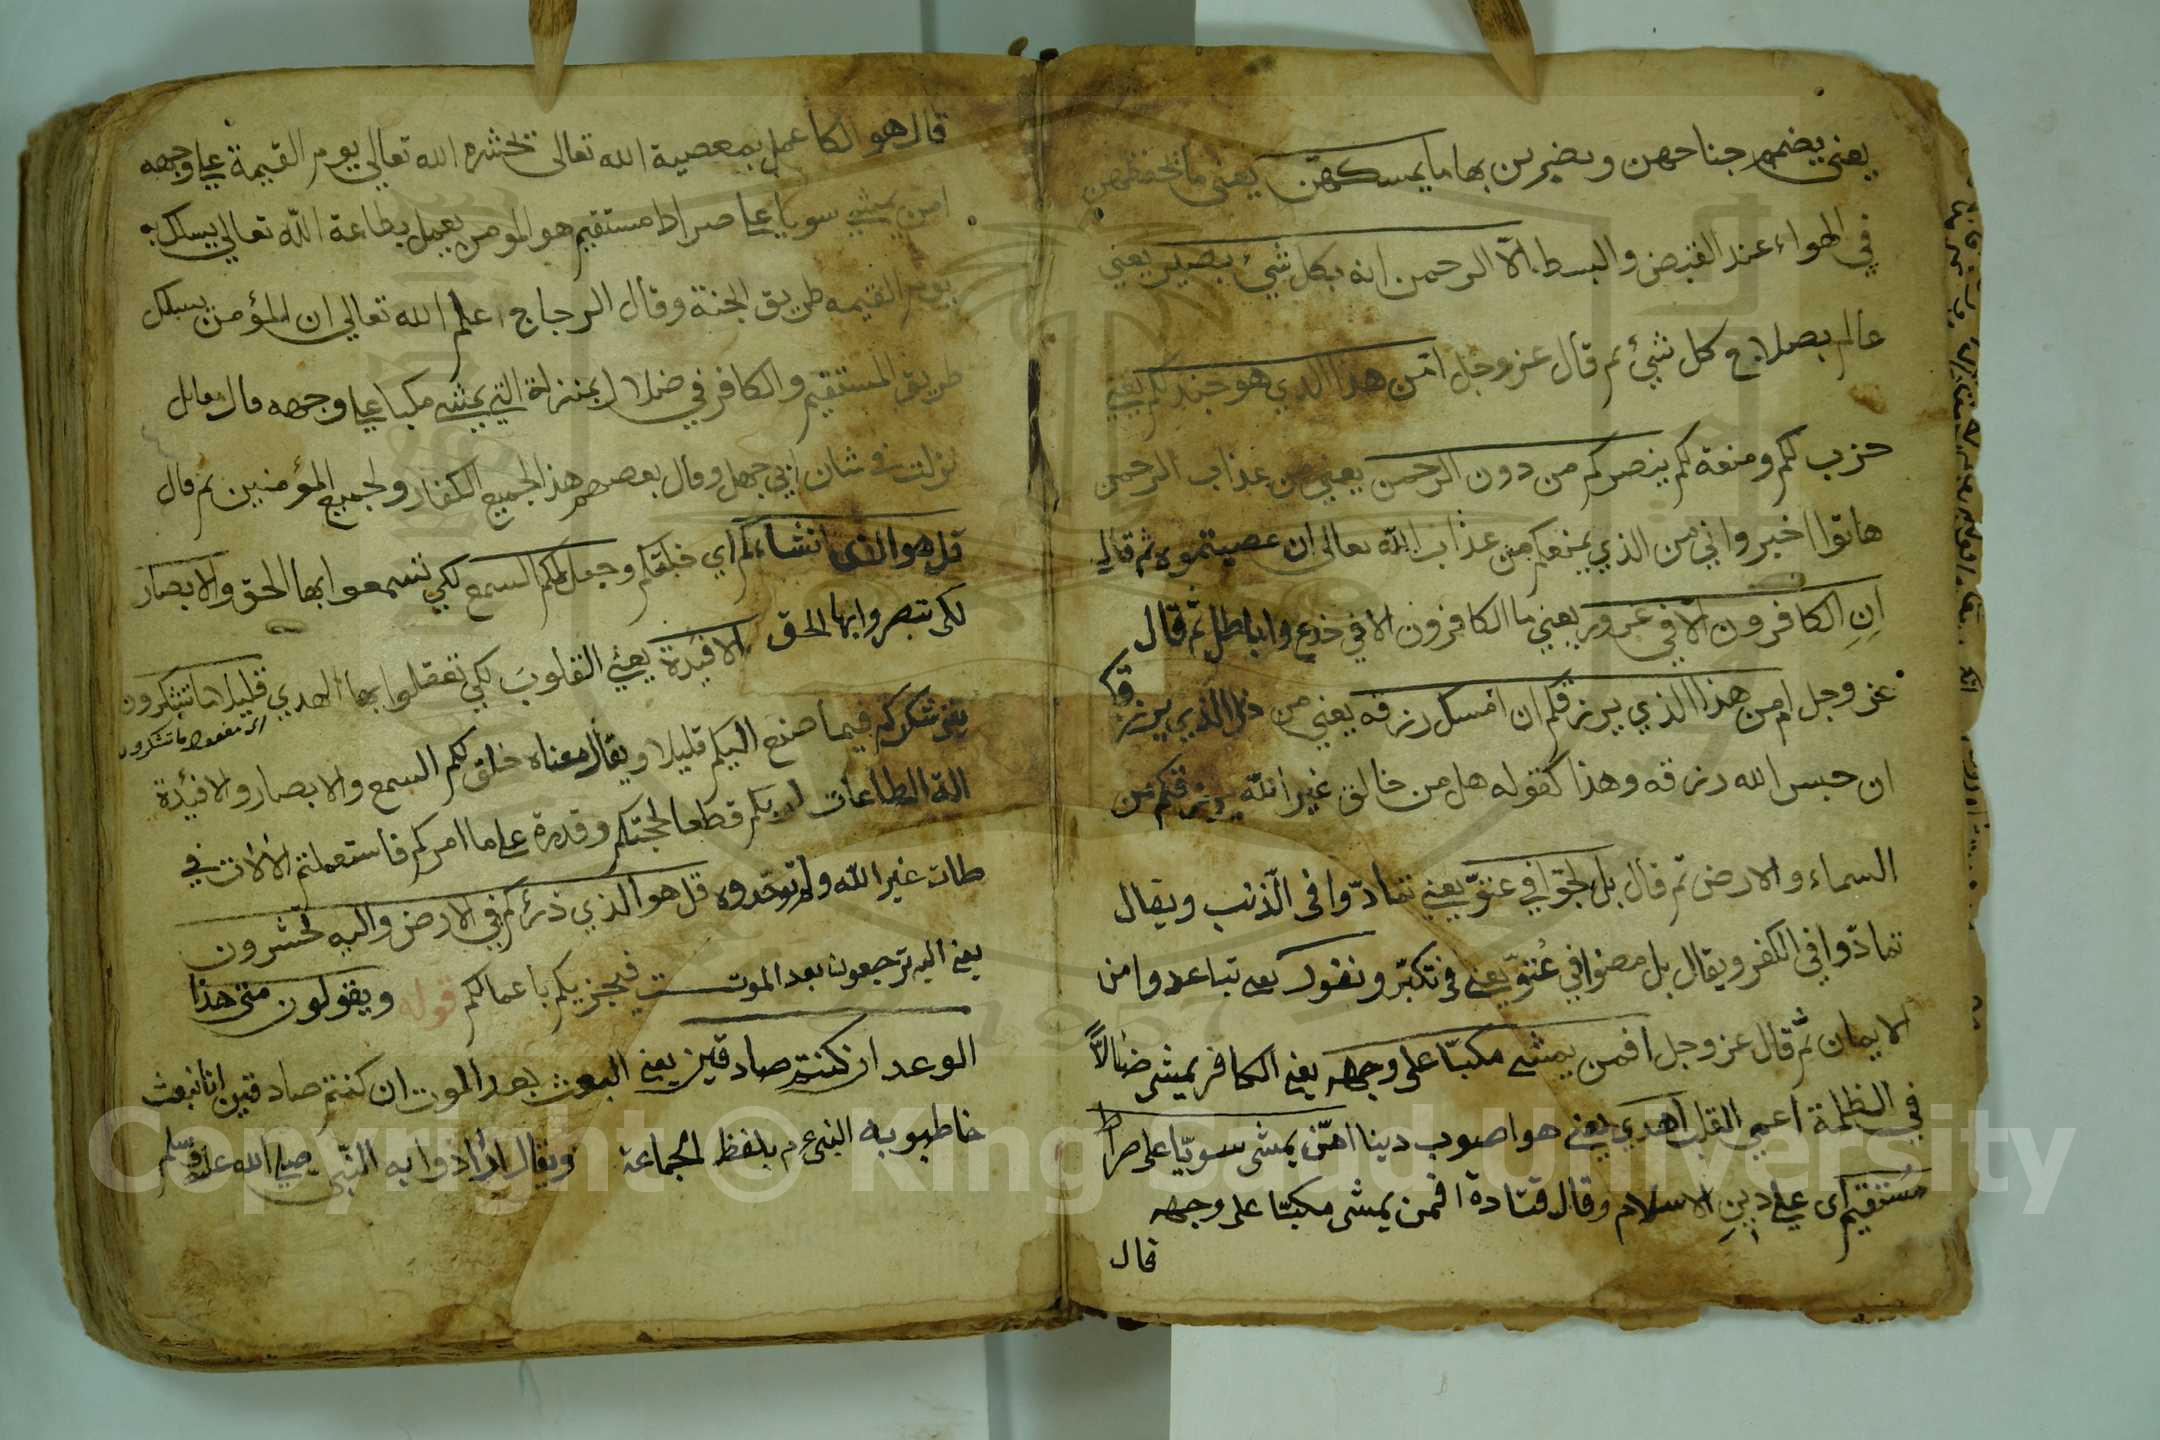 يعني يضممن جناحهن ويضربن بها ما يمسكهن يعني ما يحفظهن
في الهواء عند القبض والبسط الا الرحمن انه بكل شيء بصير يعني
عالم بصلاح كل شيء ثم قال عز وجل امن هذا الذي هو جند لكم يعني
حزب لكم ومنعة لكم ينصركم من دون الرحمن يعني من عذاب الرحمن
هاتوا اخبروني من الذي يمنعكم من عذاب الله تعالى ان عصيتموه ثم قال
ان الكافرون الا في غرور يعني ما الكافرون الا في خدع واباطل ثم قال
عز وجل ام من هذا الذي يرزقكم ان امسك رزقه يعني من ذا الذي يرزقكم
ان حبس الله رزقه وهذا كقوله هل من خالق غير الله يرزقكم من
السماء والارض ثم قال بل لجوا في عتو يعني تمادّوا في الذنب ويقال
تمادّوا في الكفر ويقال بل مضوا في عُتوّ يعني في تكبّر ونفور يعني تباعدوا من
الايمان ثم قال عز وجل افمن يمشي مكبّا على وجهه يعني الكافر يمشي ضالاًّ
في الظلمة اعمي القلب اهدي يعني هو اصوب دينا امّن يمشي سويّا على صراط
مُستقيم اي علي دين الاسلام وقال قتادة افمن يمشي مكبّا على وجهه
قال
قال هو الكا عمل بمعصية الله تعالى يحشره الله تعالي يوم القيمة علي وجهه
امن يمشي سويا علي صراط مستقيم هو المومن يعمل بطاعة الله تعالي يسلك به
يوم القيمه طريق الجنة وقال الزجاج اعلم الله تعالي ان المؤمن يسلك
طريق المستقيم والكافر في ضلال بمنزلة التي يمشي مكبا علي وجهه قال مقاتل
نزلت في شان ابي جهل وقال بعضهم هذا لجميع الكفار ولجميع المؤمنين ثم قال
قل هو الذي انشاءكم اي خلقكم وجعل لكم السمع لكي تسمعوا بها الحق والابصار
لكي تبصروا بها الحق والافيدة يعني القلوب لكي تعقلوا بها الهدي قليلا ما تشكرون
يعني شكركم فيما صنع اليكم قليلا ويقال معناه خلق لكم السمع والابصار والافئدة
الة الطاعات لربكم قطعا لحجتكم وقدرة علي ما امركم فاستعملتم الالات في
طاعت غير الله ولم توحدوه قل هو الذي ذرئكم في الارض واليه تحشرون
يعني اليه ترجعون بعد الموت فيجزيكم باعمالكم قوله ويقولون متى هذا
الوعد ان كنتم صادقين يعني البعث بعد الموت ان كنتم صادقين انا نبعث
خاطبوا به النبي ع م بلفظ الجماعة ويقال ارادوا به النبي صلي الله عليه وسلم
Copyright © King Saud University
1957